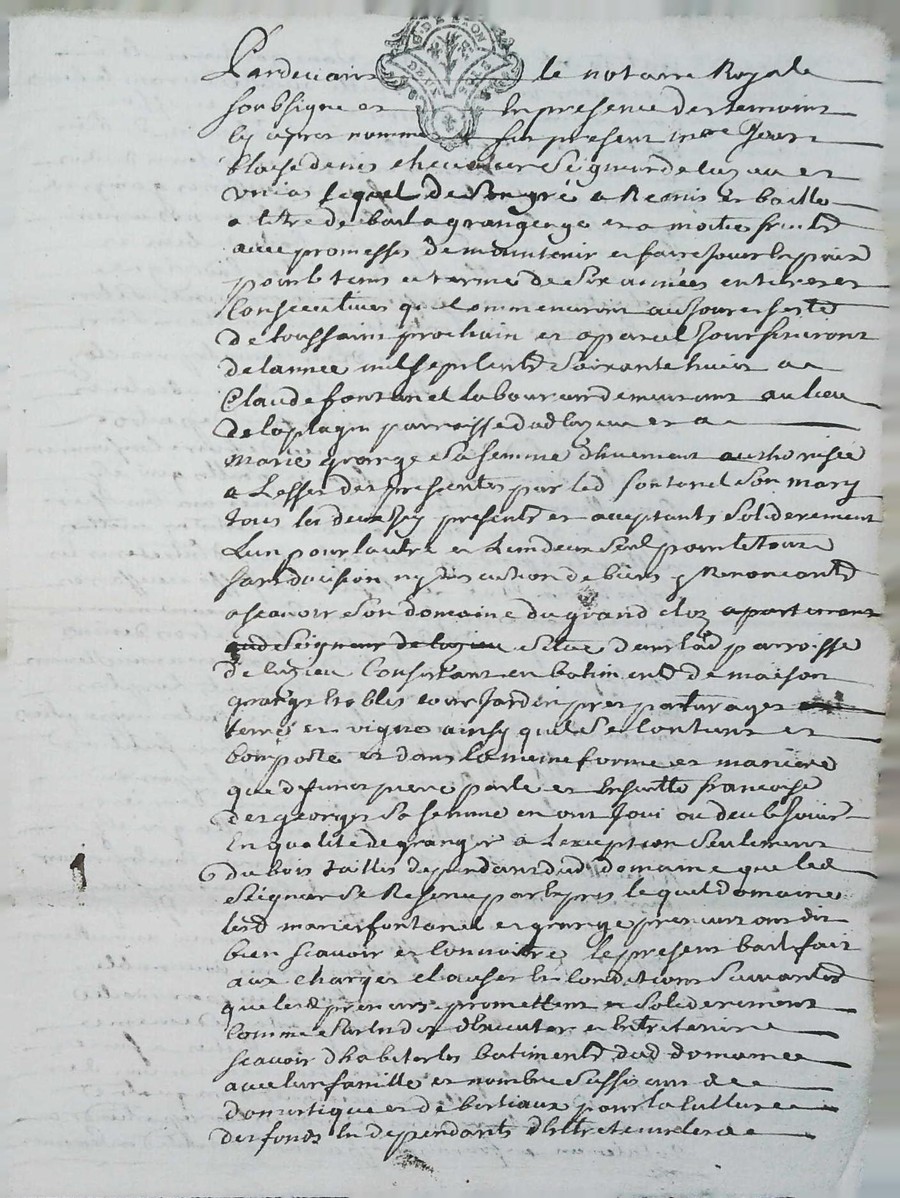 G. DE LYON
DEUX S
Pardevant le notaire Royale
soubsigne et En presence des temoins
cy apres nommes fut present Jean
blaise denis chevalier Seigneur de Luzieu et
unias lequel de Son gré a Remis et baille
a titre de bail a grangeage et a moitie fruitd
avec promesses de maintenir et faire Jouir
pour le tems et terme de Six années entieres et
Consecutives quy Commenceront au Jour et feste
de toussaint prochain et a pareil Jour finiront
de lannee mil Sept Centd Soixante huit a
Claude fontanel laboureur demeurant au lieu
de la plagn parroisse dud Luzieu et a
Marie grange Sa femme dhuement authorisée
a Leffet des presentes par led fontanel Son mary
tous les deux Icy presents et acceptants Soliderement
Lun pour lautre et Lun deux Seul pour le tout
Sans division ny discution de biens y Renonçantd
ascavoir Son domaine du grand cloz apartenant
aud Seigneur de Luzieu Scitue dans lad parroisse
de Luzieu Consistant en batimentd de maison
grange Etables cour Jardin prés pasturages
terre et vigne ainsy quil Se Contient et
Comporte et dans la meme forme et maniere
que defunct pierre parle et Ensuitte francoise
des georges Sa femme en ont Joui ou deub Jouir
En qualité de granger a Lexception Seulement
du bois taillis dependant dud domaine que led
Seigneur Se Reserve lequel domaine
lesd maries fontanel et grange preneurs ont dit
bien Scavoir et Connoitre, le present bail fait
aux charges clauses En Conditions Suivantes
que lesd preneurs promettent et Soliderement
Comme Sus est dit dExecuter et Entretenir
Scavoir dhabiter les batimentd dud domaine
avec leur famille et nombre Suffisant de
domestiques et de bestiaux pour la Culture
des fonds En dependants dEntretenir les